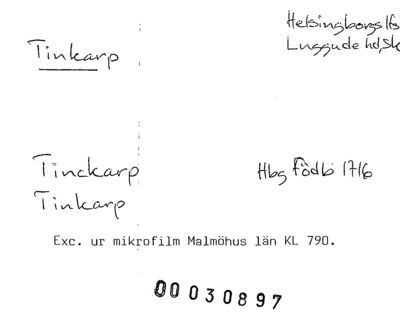 Helsingborgs lfs
Tinkarp
Luggude hd, Sk
Tinckarp
Hbg födb 1716
Tinkarp
Exc. ur mikrofilm Malmöhus län KL 790.
00 030897